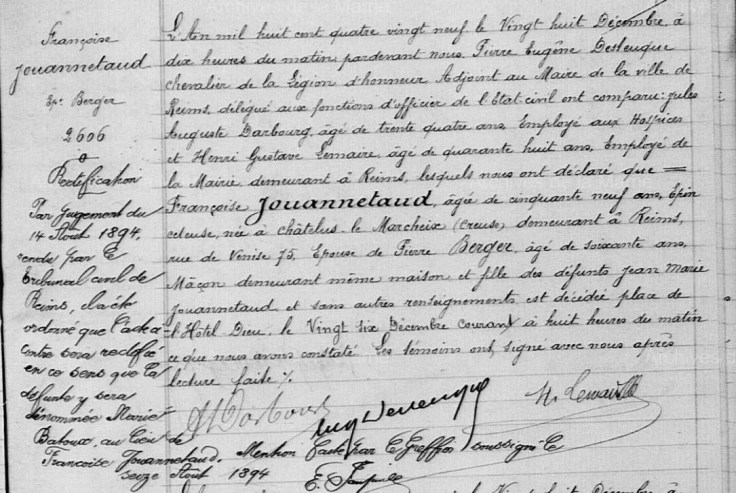 Françoise
Jouannetaud
Ep. Berger
2606
Rectification
Par Jugement du
14 Août 1894,
rendu par le
Tribunal civil de
Reims, il a été
ordonné que l'acte ci
contre sera rectifié
en ce sens que la
défunte y sera
dénommée Marie
Batoux, au lieu de
Françoise Jouannetaud. Mention faite par le Greffier soussigné le
seize Août 1894
L'An mil huit cent quatre vingt neuf le Vingt huit Décembre à
dix heures du matin, pardevant nous Pierre Eugène Desteuque
chevalier de la Légion d'honneur Adjoint au Maire de la ville de
Reims, délégué aux fonctions d'officier de l'Etat-civil ont comparu: Jules
Auguste Darbourg, âgé de trente quatre ans, Employé aux Hospices
et Henri Gustave Lemaire, âgé de quarante huit ans, Employé de
la Mairie demeurant à Reims, lesquels nous ont déclaré que =
Françoise Jouannetaud, âgée de cinquante neuf ans, Epin
celeuse, née à Châtelus-le Marcheix (Creuse) demeurant à Reims,
rue de Venise 75, Epouse de Pierre Berger, âgé de soixante ans,
Mâçon demeurant même maison et fille des défunts Jean Marie
Jouannetaud et sans autres renseignements est décédée place de
l'Hôtel Dieu, le Vingt six Décembre courant à huit heures du matin
ce que nous avons constaté. Les témoins ont signé avec nous après
lecture faite ./.
L'An mil huit cent quatre vingt neuf le Vingt huit Décembre à